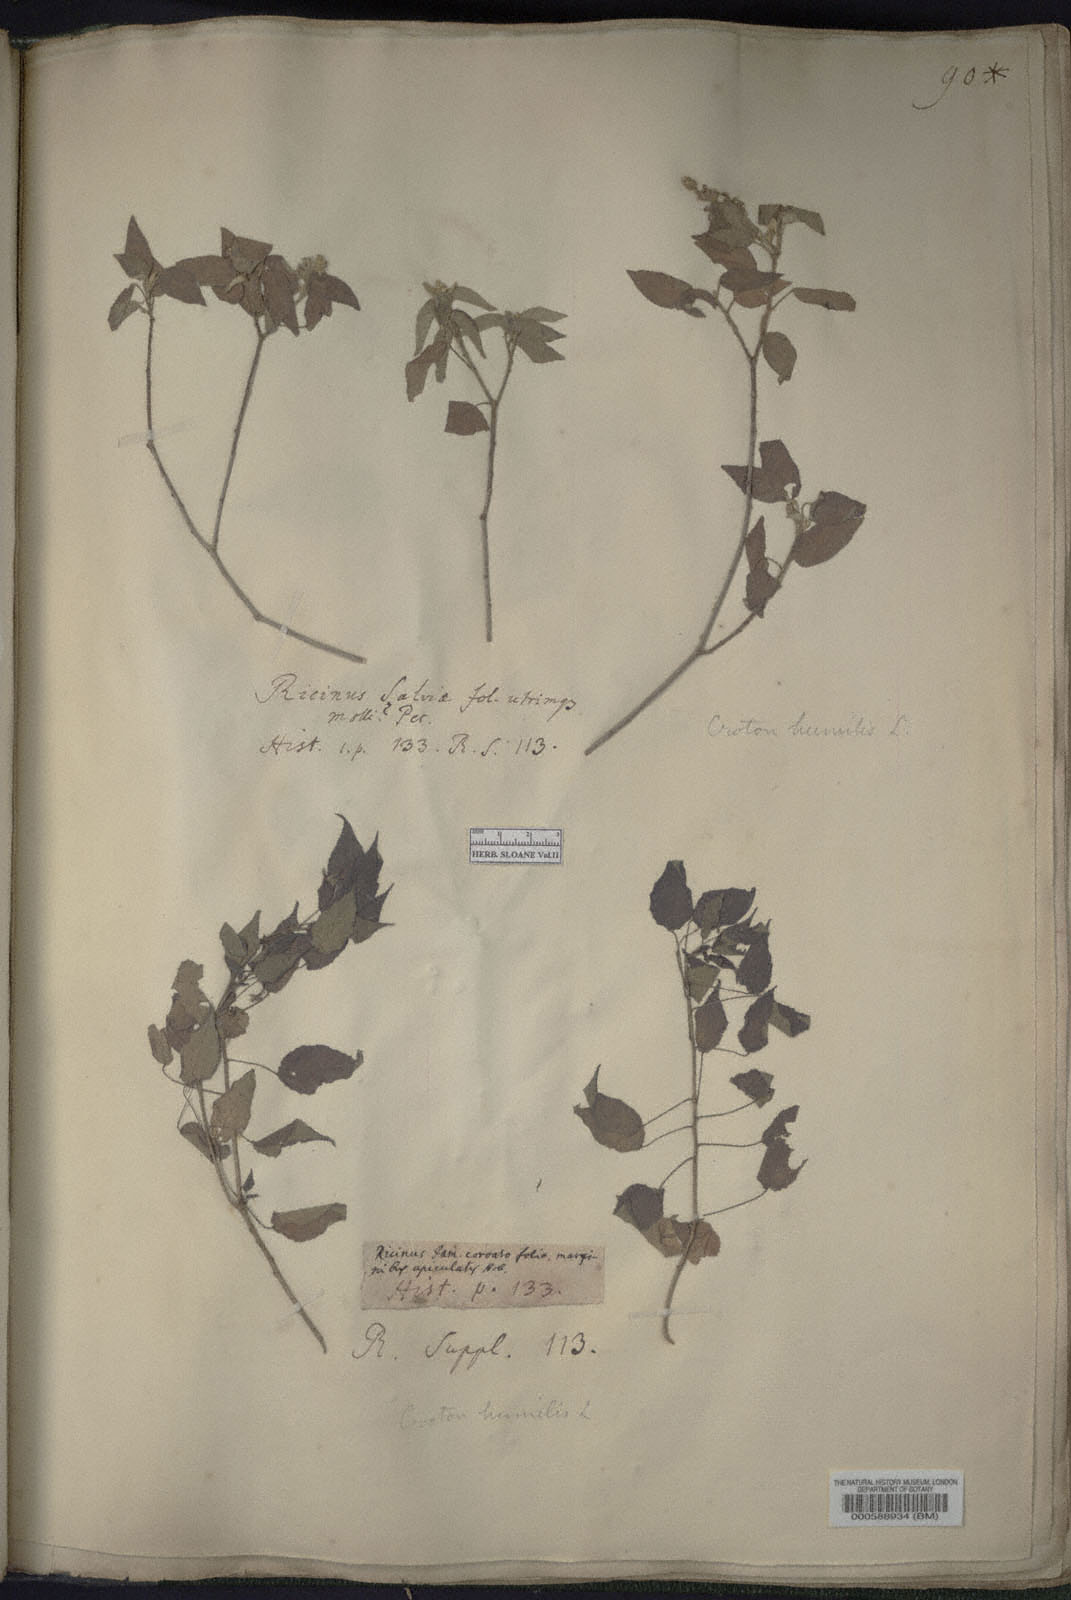 90*
Ricinus Salviæ fol. utrimqȝ
molli. Pet.
Hist. 1. p. 133. R. S. 113.
Croton humilis L.
HERB. SLOANE Vol.II
Ricinus Jam. folio, margi-
apiculatis
Hist. p. 133.
R. Suppl. 113.
Croton humilis L
THE NATURAL HISTORY MUSEUM, LONDON
DEPARTMENT OF BOTANY
000588934 (BM)